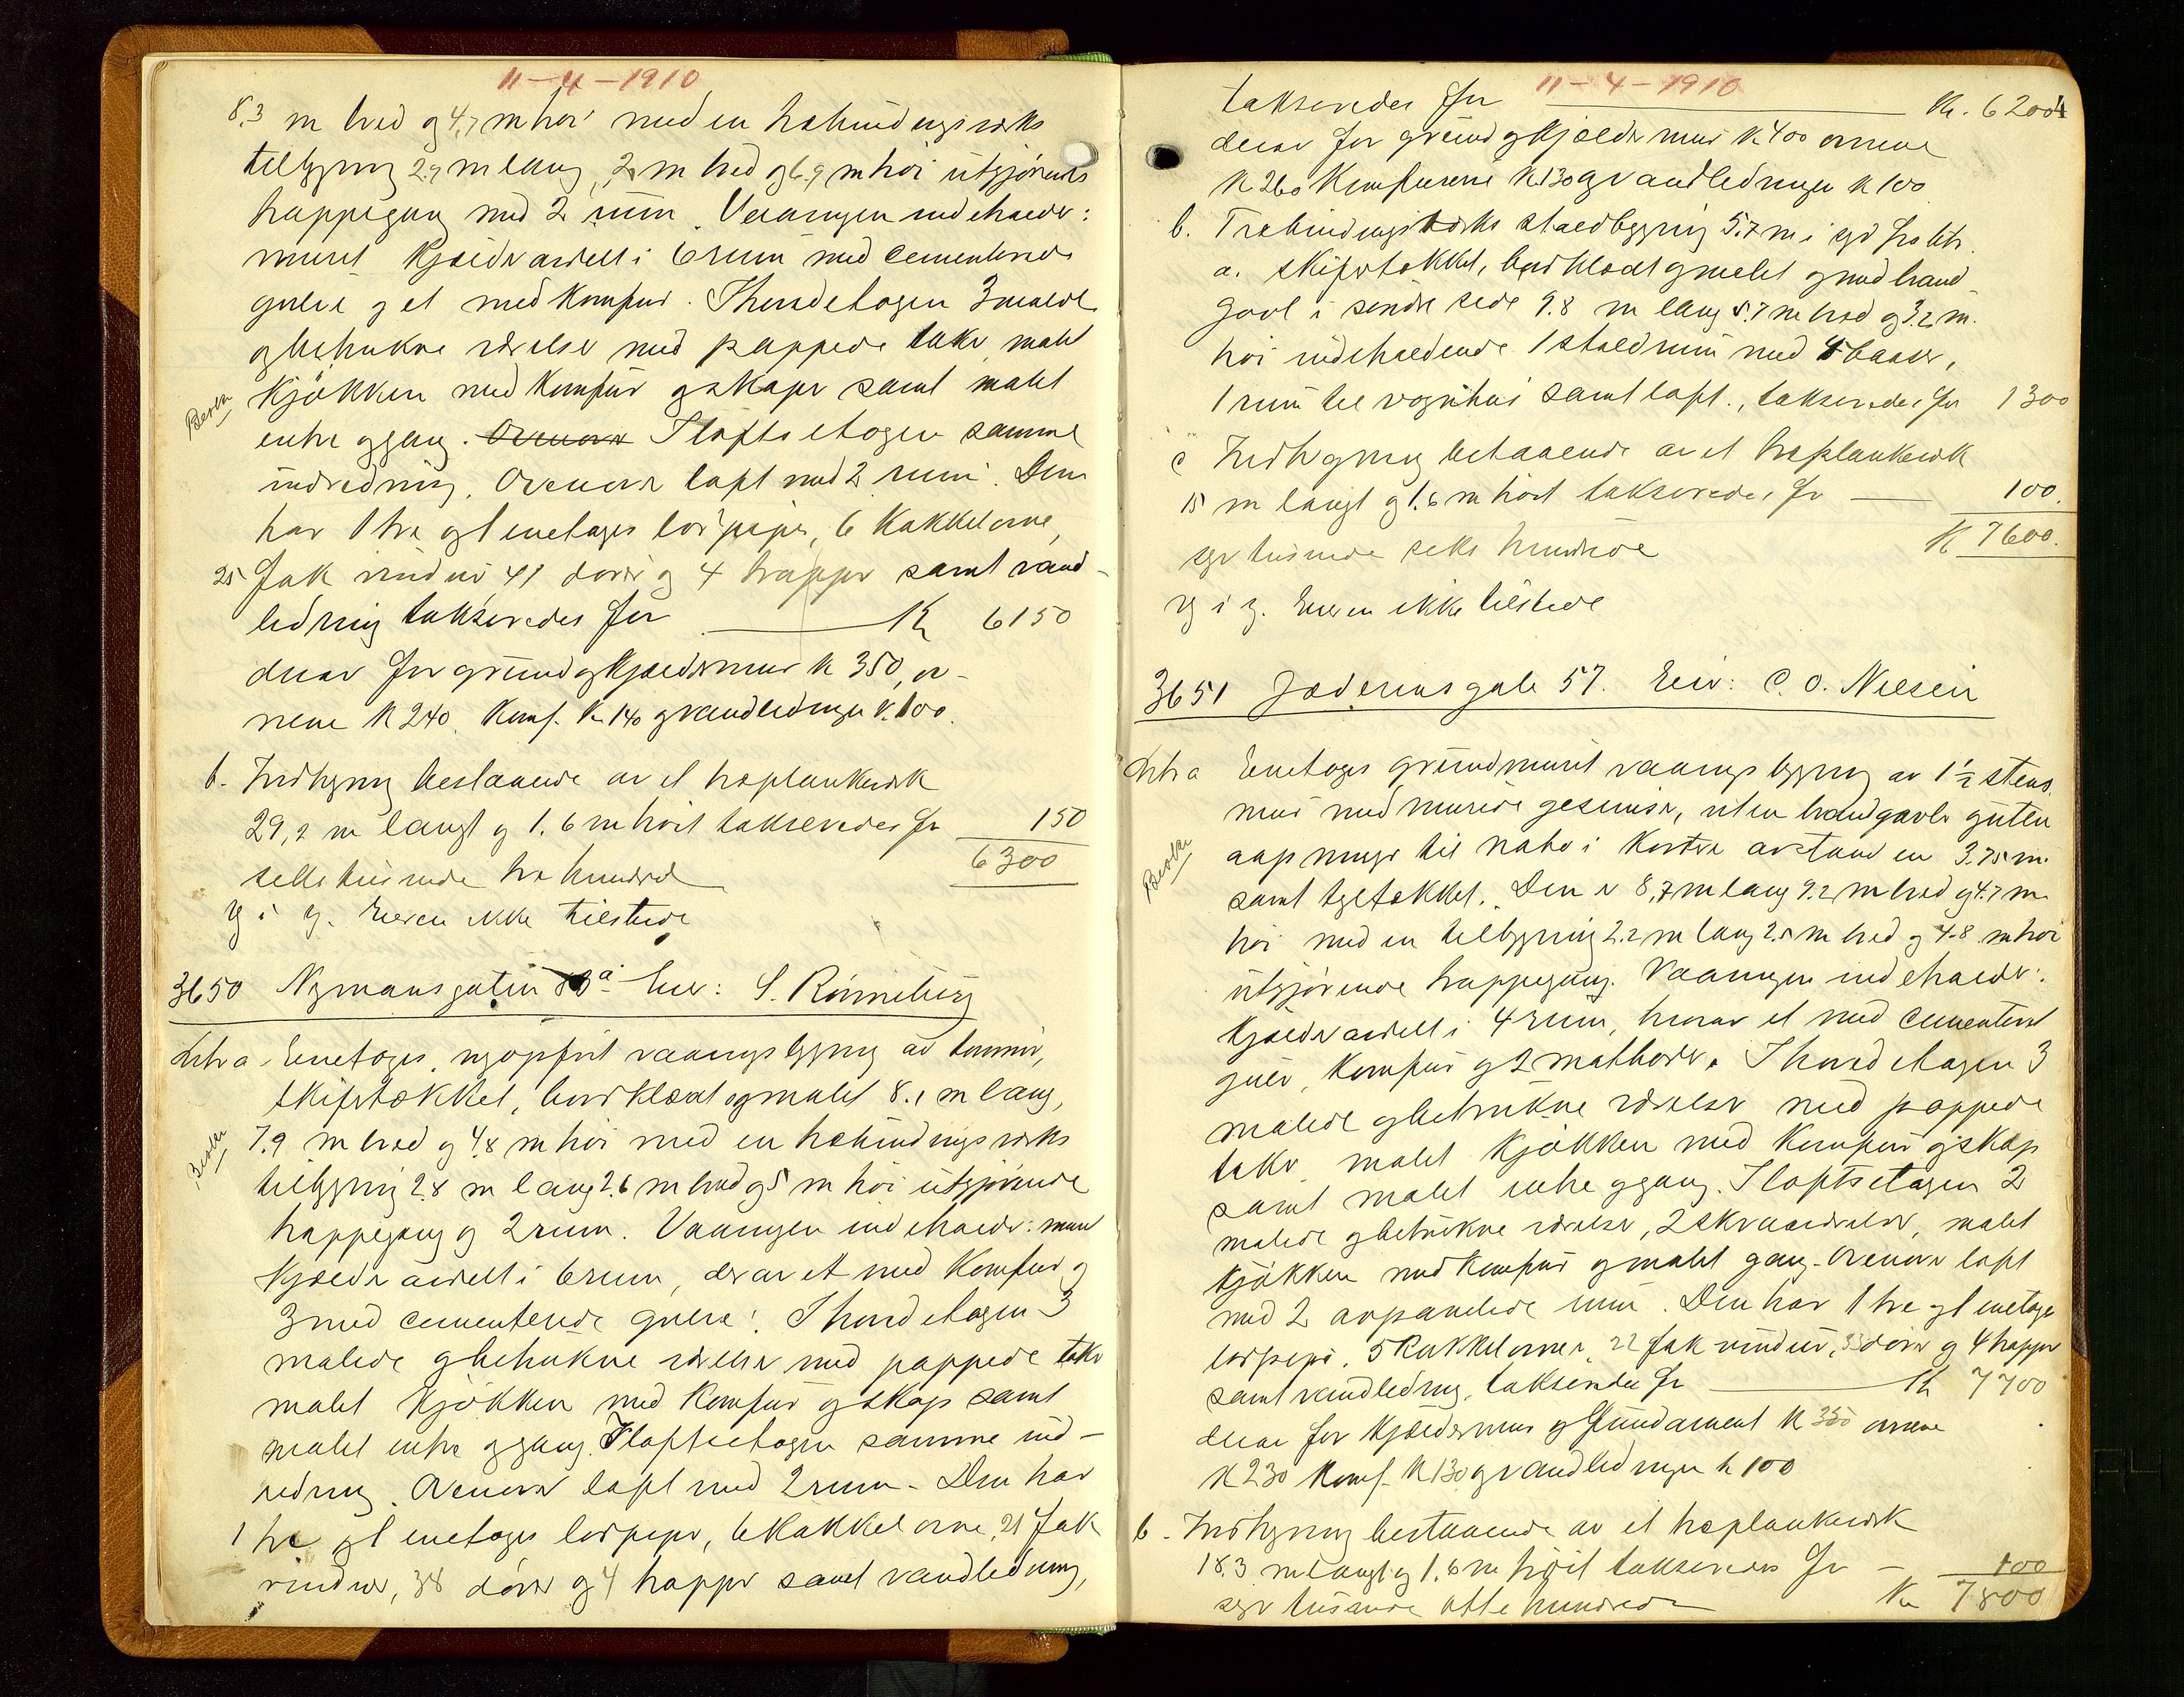 11-4-1910
8,3 m bred og 4,7 m høi med en træbindingsverks
tilbygning 2.9 m lang, 2 m bred og 6.9 m høi utgjørende
trappegang med 2 rum. Vaaningen indeholder:
muret kjælder avdelt i 6 rum med cementerede
gulve og et med komfur. I hovedetagen 3 malede
og betrukne værelser med pappede take malet
Kjøkken med komfur og skape samt malet
entre og gang. Ovenover I loftsetagen samme
indredning. Ovenover loft med 2 rum. Den
har 1 tre og 1 enetages lorpipe, 6 kakkelovne,
25 fak vinduer 41 dører og 4 trapper samt vand-
ledning takseredes for Kr 6150
derav for grund og kjældermur k 350, ov-
nene k 240. Komf. Kr 140 og vandledningen k. 100.
b. Indhegning bestaaende av et træplankeverk
29,2 m langt og 1.6 m høit takseredes for 150
6300
seks tusinde tre hundrede
Eieren ikke tilstede
3650 Nymansgaten Eier: S. Rønneberg
Litr a. Enetages, nyopført vaaningsbygning av tømmer,
skifertækket, bordklædt og malet 8.1 m lang,
7.9 m bred og 4.8 m høi med en træbindingsverks
tilbygning 2.8 m lang 2.6 m bred og 5 m høi utgjørende
trappegang og 2 rum. Vaaningen indeholder: muret
Kjælder avdelt i 6 rum, derav et med komfur og
3 med cementerede gulve. I hovedetagen 3
malede og betrukne værelser med pappede take
malet kjøkken med komfur og skap samt
malet entre og gang. I loftsetagen samme ind-
redning. Ovenover loft med 2 rum. Den har
1 tre og 1 enetages lorpiper, 6 kakkelovne, 21 fak
vinduer, 38 dører og 4 trapper samt vandledning,
11-4-1910
takseredes for Kr. 6200
derav for grund og kjældermur k 400 ovnene
k 260 Komfurene k. 130 og vandledningen k 100
b. Træbindingsverks staldbygning 5.7 m i syd fra litr.
a. skifertækket, bordklædt og malet og med brand-
gavl i søndre side 9.8 m lang 5.7 m bred og 3.2 m.
høi indeholdende 1 staldrum med baaser,
1 rum til vognhus samt loft., takseredes for 1300
c Indhegning bestaaende av et træplankeverk
15 m langt og 1.6 m høit takseredes for 100.
K 7600.
syv tusinde seks hundrede
Eieren ikke tilstede
3651 Jæderensgate 57. Eier: C. O. Nielsen
Litr a Enetages grundmuret vaaningsbygning av 1½ stens
mur med murede gesimser, uten brandgavle og uten
aapninger til nabo i kortere avstand en 3.75 m.
samt tegltækket. Den er 8,7 m lang 9.2 m bred og 4.7 m
høi med en tilbygning 2.2 m lang 2.5 m bred og 4.8 m høi
utgjørende trappegang. Vaaningen indeholder:
kjælder avdelt i 4 rum, hvorav et med cementeret
gulv, komfur og 2 matboder. I hovedetagen 3
malede og betrukne værelser med pappede
take malet kjøkken med komfur og skap
samt malet entre og gang. I loftsetagen 2
malede og betrukne værelser, 2 skraaværelser, malet
kjøkken med komfur og malet gang. Ovenover loft
med 2 avpanelede rum. Den har 1 tre og 1 enetage
lorpipe, 5 kakkelovner, 22 fak vinduer, 33 dører og 4 trapper
samt vandledning, takseredes for Kr 7700
derav for kjældermur og fundament k 350 ovnene
k 230 Komf. k 130 og vandledningen k 100
b. Indhegning bestaaende av et træplankeverk
18.3 m langt og 1.6 m høit takseredes for 100
syv tusinde otte hundrede Kr 7800